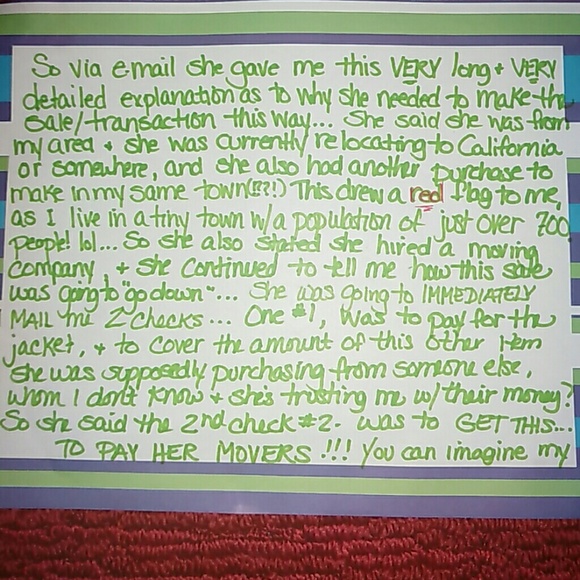 So via email she gave me this VERY long + VERY
detailed explanation as to why she needed to make the
sale/transaction this way... She said she was from
my area + she was currently relocating to California
or somewhere, and she also had another purchase to
make in my same town(!?!) This drew a red flag to me,
as I live in a tiny town w/a population of just over 700
people! lol... So she also stated she hired a moving
company, + she continued to tell me how this sale
was going to "go down"... She was going to IMMEDIATELY
MAIL me 2 checks... One #1, was to pay for the
jacket, + to cover the amount of this other item
she was supposedly purchasing from someone else,
whom I don't know + she's trusting me w/their money?
So she said the 2nd check #2. was to GET THIS...
TO PAY HER MOVERS !!! You can imagine my